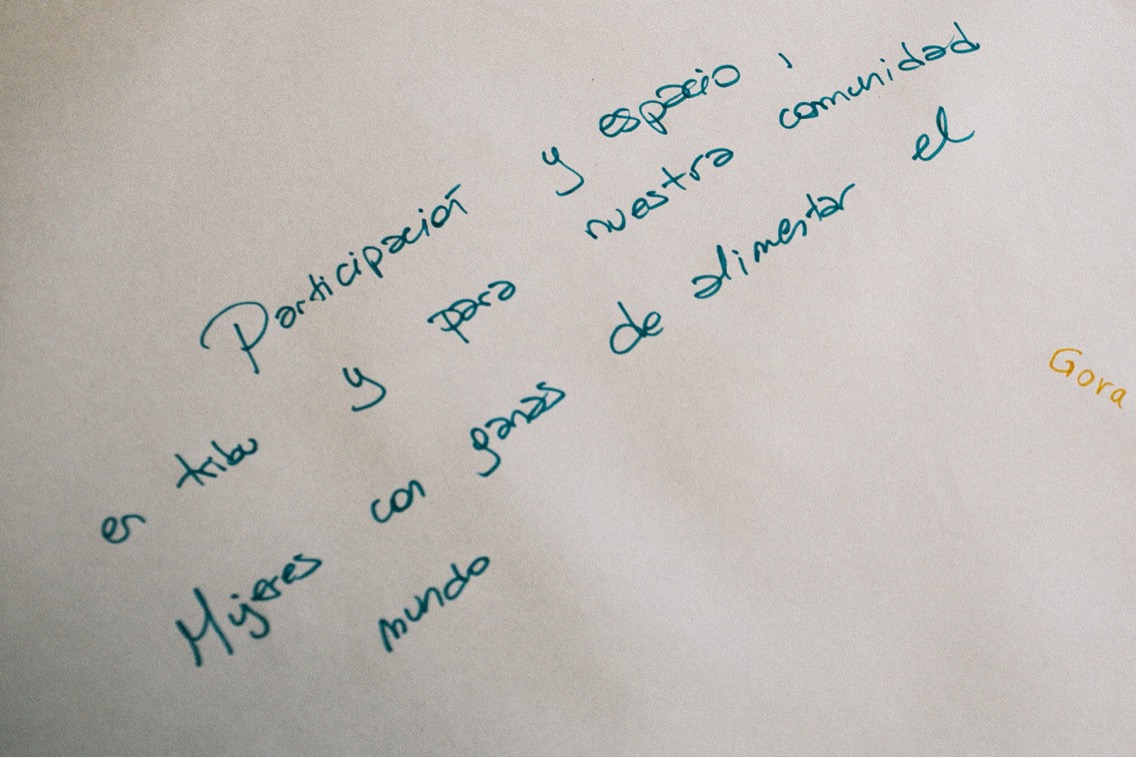 Participación y espacio,
en tribu y para nuestra comunidad
Mujeres con ganas de alimentar el
mundo
Gora